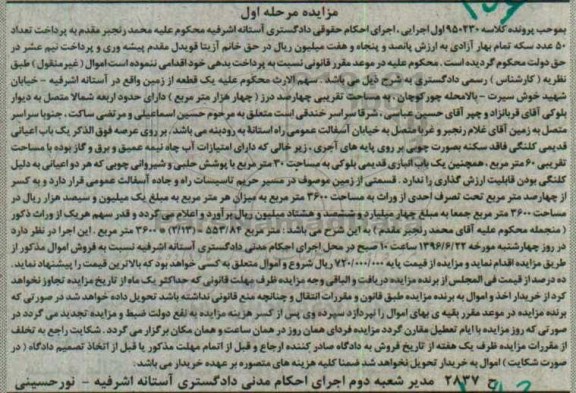 مزایده مرحله اول
بموجب پرونده کلاسه ۹۵۰۲۳۰ اول اجرایی، اجرای احکام حقوقی دادگستری آستانه اشرفیه محکوم علیه محمد رنجبر مقدم به پرداخت تعداد
۵۰ عدد سکه تمام بهار آزادی به ارزش پانصد و پنجاه و هفت میلیون ریال در حق خانم آزیتا قویدل مقدم پیشه وری و پرداخت نیم عشر در
حق دولت محکوم گردیده است. محکوم علیه در موعد مقرر قانونی نسبت به پرداخت بدهی خود اقدامی ننموده است اموال (غیر منقول) طبق
نظریه (کارشناس) رسمی دادگستری به شرح ذیل می باشد. سهم الارث محکوم علیه یک قطعه از زمین واقع در آستانه اشرفیه - خیابان
شهید خوش سیرت - بالامحله چورکوچان، به مساحت تقریبی چهارصد درز (چهار هزار متر مربع) دارای حدود اربعه شمالا متصل به دیوار
بلوکی آقای قربانزاد و چپر آقای حسین عباسی، شرقا سراسر خندقی است متعلق به مرحوم حسین اسماعیلی و مرتضی ساکت، جنوبا سراسر
متصل به زمین آقای غلام رنجبر و غربا متصل به خیابان آسفالت عمومی راه استانه به رودبنه می باشد. بر روی عرصه فوق الذکر یک باب اعیانی
قدیمی کلنگی فاقد سکنه بصورت چوبی بر روی پایه های آجری، زیر خالی که دارای امتیازات آب چاه نیمه عمیق و برق و گاز بوده با مساحت
تقریبی ۶۰ متر مربع، همچنین یک باب انباری قدیمی بلوکی به مساحت ۳۰ متر مربع با پوشش حلبی و شیروانی چوبی که هر دو اعیانی به دلیل
کلنگی بودن قابلیت ارزش گذاری را ندارد. قسمتی از زمین موصوف در مسیر حریم تاسیسات راه و جاده آسفالت عمومی قرار دارد و به کسر
از چهارصد متر مربع تحت تصرف احدی از وراث به مساحت ۳۶۰۰ متر مربع به میزان هر متر مربع به مبلغ یک میلیون و سیصد هزار ریال در
مساحت ۳۶۰۰ متر مربع جمعا به مبلغ چهار میلیارد و ششصد و هشتاد میلیون ریال برآورد و اعلام می گردد و قدر سهم هر یک از وراث ذکور
(منجمله محکوم علیه آقای محمد رنجبر مقدم) به این شرح می باشد: متر مربع ۵۵۳/۸۴ = (۲/۱۳) * ۳۶۰۰ متر مربع. این اجرا در نظر دارد
در روز چهارشنبه مورخه ۱۳۹۶/۶/۲۲ ساعت ۱۰ صبح در محل اجرای احکام مدنی دادگستری آستانه اشرفیه نسبت به فروش اموال مذکور از
طریق مزایده اقدام نماید و مزایده از قیمت پایه ۷۲۰/۰۰۰/۰۰۰ ریال شروع و اموال متعلق به کسی خواهد بود که بالاترین قیمت را پیشنهاد نماید.
ده درصد از قیمت فی المجلس از برنده مزایده دریافت و الباقی وجه مزایده ظرف مهلت قانونی که حداکثر یک ماه از تاریخ مزایده تجاوز نخواهد
کرد از خریدار اخذ و اموال به برنده مزایده طبق قانون و مقررات انتقال و چنانچه منع قانونی نداشته باشد تحویل داده خواهد شد در صورتی که
برنده مزایده در موعد مقرر بقیه ی بهای اموال را نپردازد سپرده وی پس از کسر هزینه مزایده به نفع دولت ضبط و مزایده تجدید می گردد در
صورتی که روز مزایده با ایام تعطیل مقارن گردد مزایده فردای همان روز در همان ساعت و همان مکان برگزار می گردد. شکایت راجع به تخلف
از مقررات مزایده ظرف یک هفته از تاریخ فروش به دادگاه صادر کننده ارجاع و قبل از اتمام مهلت مذکور یا قبل از اتخاذ تصمیم دادگاه (در
صورت شکایت) اموال به خریدار تحویل نخواهد شد ضمنا کلیه هزینه های متصوره بر عهده خریدار می باشد.
ح ۲۸۳۷ مدیر شعبه دوم اجرای احکام مدنی دادگستری آستانه اشرفیه - نورحسینی